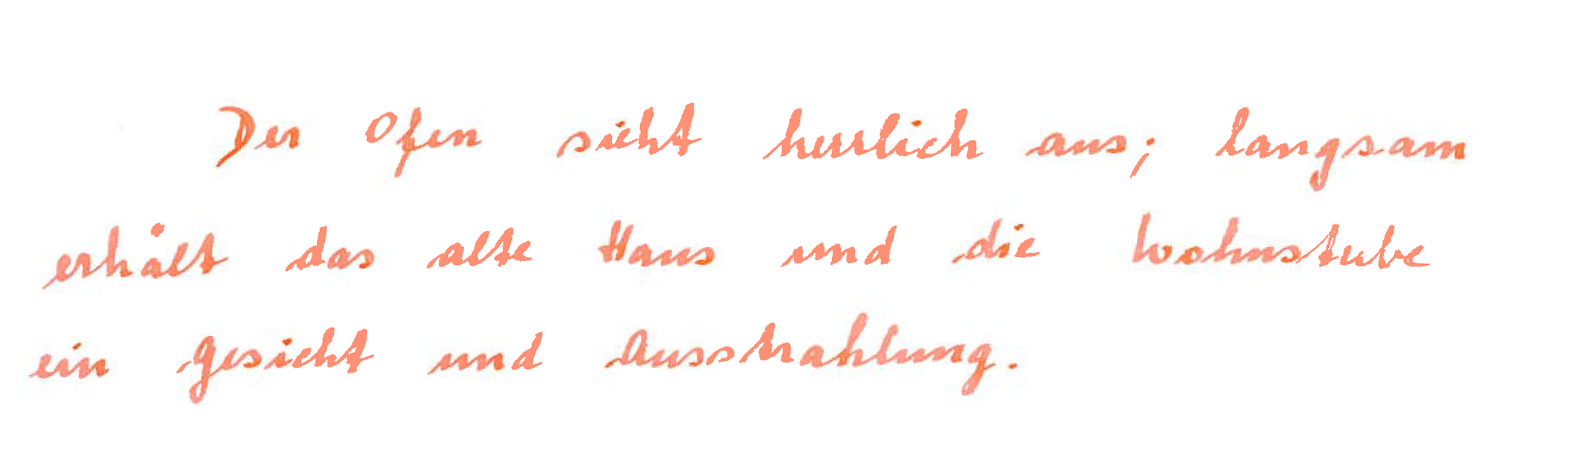 Der Ofen sieht herrlich aus; langsam
erhält das alte Haus und die Wohnstube
ein Gesicht und Ausstrahlung.